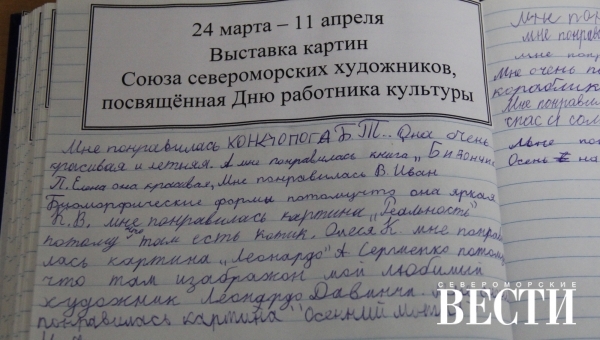 24 марта – 11 апреля
Выставка картин
Союза североморских художников,
посвящённая Дню работника культуры
Мне понравилась КОНЧОПОГА Б.Т.. Она очень
красивая и летняя. А мне понравилась книга „Битончик
П. Елена она красивая, Мне понравилась В. Иван
Биоморфические формы потомучто она яркая
К.В. мне понравилась картина „Реальность"
потому что там есть котик. Олеся К. мне понрави
лась картина „Леонардо" А Сергиенко потому
что там изабражон мой любимий
художник Леонардо Давинчи
понравилась картина "Осенний
Мне
мне понрави
мне понра
Мне очень по
кораблик
Мне понравил
спас и сол
Мне пон
Осень на
СЕВЕРОМОРСКИЕ
ВЕСТИ